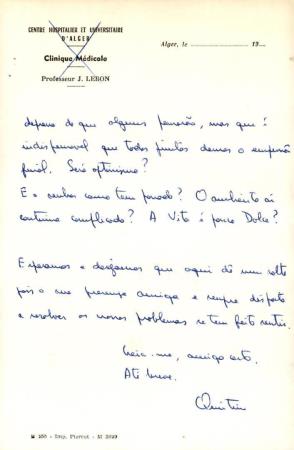 CENTRE HOSPITALIER ET UNIVERSITAIRE
D'ALGER
Clinique Médicale
Professeur J. LEBON
Alger, le ................ 19....
depois do que alguns pensarão, mas que é
indispensável que todos juntos demos o empurrão
final. Será optimismo?
E o senhor como tem passado? O ambiente aí
continua complicado? A Vita é pouco Dolce?
Esperamos e desejamos que aqui dê um salto
pois a sua presença amiga e sempre disposta
a resolver os nossos problemas se tem feito sentir.
Creia-me, amigo certo.
Até breve.
M 255 - Imp. Pierrot - M 2029